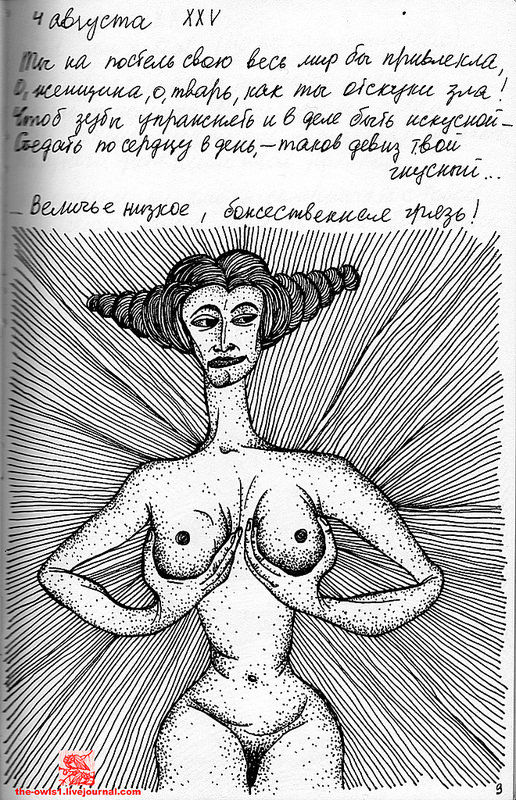 4 августа XXV
Ты на постель свою весь мир бы привлекла,
О, женщина, о, тварь, как ты от скуки зла!
Чтоб зубы упражнять и в деле быть искусной –
Съедать по сердцу в день, – таков девиз твой
гнусный...
– Величье низкое, божественная грязь!
the-owls1.livejournal.com
9